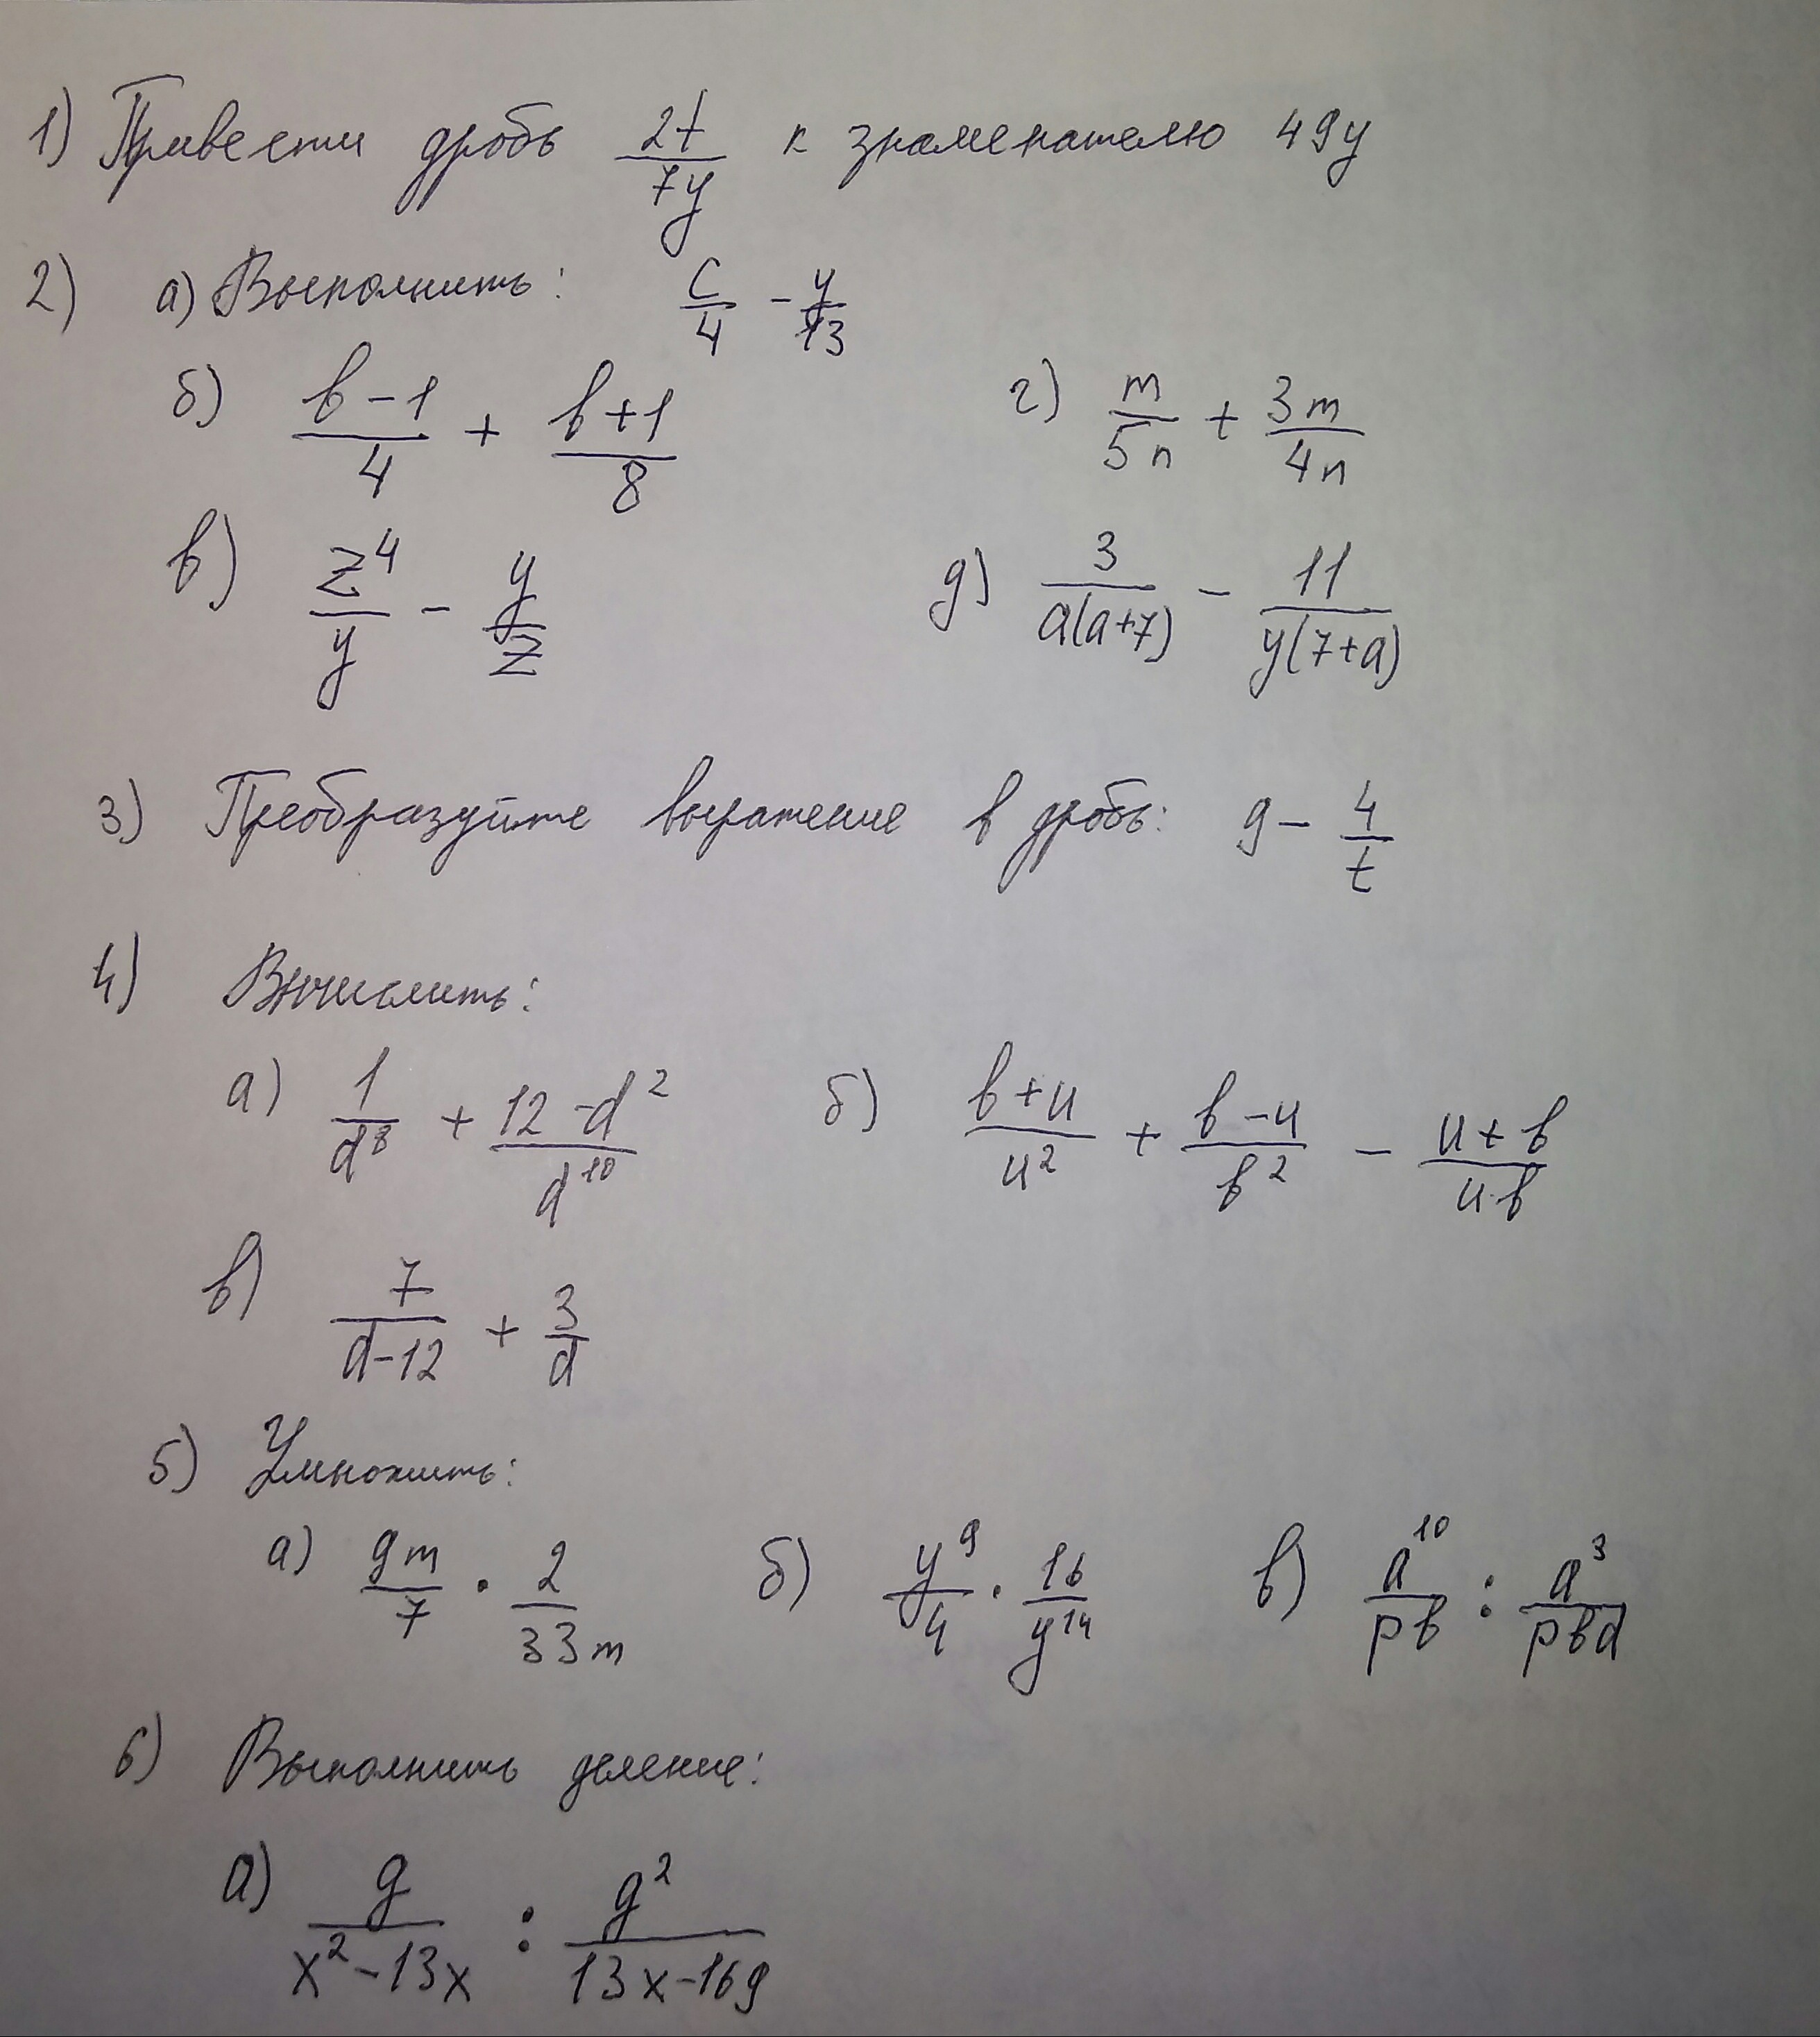 1) Привести дробь 2t/7y к знаменателю 49y
2) а) Выполнить: c/4 - y/13
б) (b-1)/4 + (b+1)/8
г) m/5n + 3m/4n
в) z^4/y - y/z
д) 3/(a(a+7)) - 11/(y(7+a))
3) Преобразуйте выражение в дробь: 9 - 4/t
4) Вычислить:
а) 1/d^8 + (12-d^2)/d^10
б) (b+u)/u^2 + (b-u)/b^2 - (u+b)/(u·b)
в) 7/(d-12) + 3/d
5) Умножить:
а) 9m/7 · 2/33m
б) y^9/4 · 16/y^14
в) a^10/pb : a^3/pbd
6) Выполнить деление:
а) g/(x^2-13x) : g^2/(13x-169)